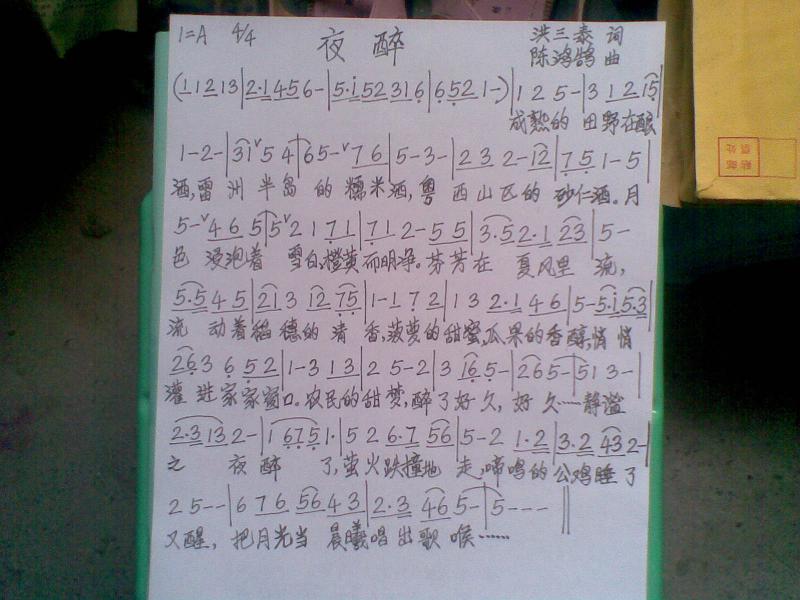 1=A 4/4 夜醉 洪三泰 词
陈鸿鹄 曲
(1 1 2 1 3 | 2·1 4 5 6 - | 5·i 5 2 3 1 6 | 6 5 2 1 -) | 1 2 5 - | 3 1 2 1 5 |
成熟的 田野在酿
1 - 2 - | 3 1 ˅ 5 4 | 6 5 - ˅ 7 6 | 5 - 3 - | 2 3 2 - 1 2 | 7 5 1 - 5 |
酒,雷州半岛 的糯米酒,粤西山区的 砂仁酒。月
5 - ˅ 4 6 5 | 5 ˅ 2 1 7 1 | 7 1 2 - 5 5 | 3·5 2·1 2 3 | 5 -
色 浸泡着 雪白,橙黄而明净。芬芳在 夏风里 流,
5·5 4 5 | 2 1 3 1 2 7 5 | 1 - 1 7 2 | 1 3 2·1 4 6 | 5 - 5·i 5·3 |
流 动着稻穗的清 香,菠萝的甜蜜,瓜果的香醇,悄悄
2 6 3 6 5 2 | 1 - 3 1 3 | 2 5 - 2 | 3 1 6 5 - | 2 6 5 - | 5 1 3 - |
灌进家家窗口。农民的甜梦,醉了好久,好久……静谧
2·3 1 3 2 - | 1 6 7 5 1· | 5 2 6·7 5 6 | 5 - 2 1·2 | 3·2 4 3 2 - |
之 夜醉 了,萤火跌撞地 走,啼鸣的公鸡睡了
2 5 - - | 6 7 6 5 6 4 3 | 2·3 4 6 5 - | 5 - - - ‖
又醒, 把月光当 晨曦唱出歌喉……